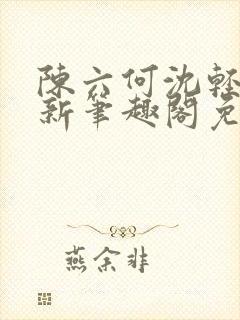 陳六何沈輕
新筆趣閣免
燕余非